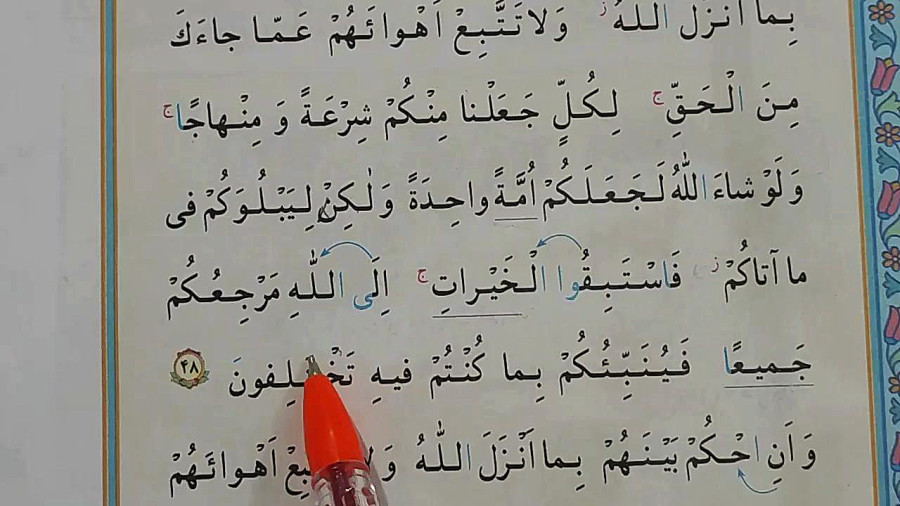 بِما اَنْزَلَ اللهُ ز وَلا تَتَّبِعْ اَهْوائَهُمْ عَمّا جاءَكَ
مِنَ الْحَقِّ ج لِكُلٍّ جَعَلْنا مِنْكُمْ شِرْعَةً وَ مِنْهاجًا ج
وَ لَوْ شاءَ اللهُ لَجَعَلَكُمْ اُمَّةً واحِدَةً وَ لٰكِنْ لِيَبْلُوَكُمْ فى
ما آتاكُمْ ز فَاسْتَبِقُوا الْخَيْراتِ ج اِلَى اللهِ مَرْجِعُكُمْ
جَميعًا فَيُنَبِّئُكُمْ بِما كُنْتُمْ فيهِ ۴۸
وَ اَنِ احْكُمْ بَيْنَهُمْ بِما اَنْزَلَ اللهُ اَهْوائَهُمْ